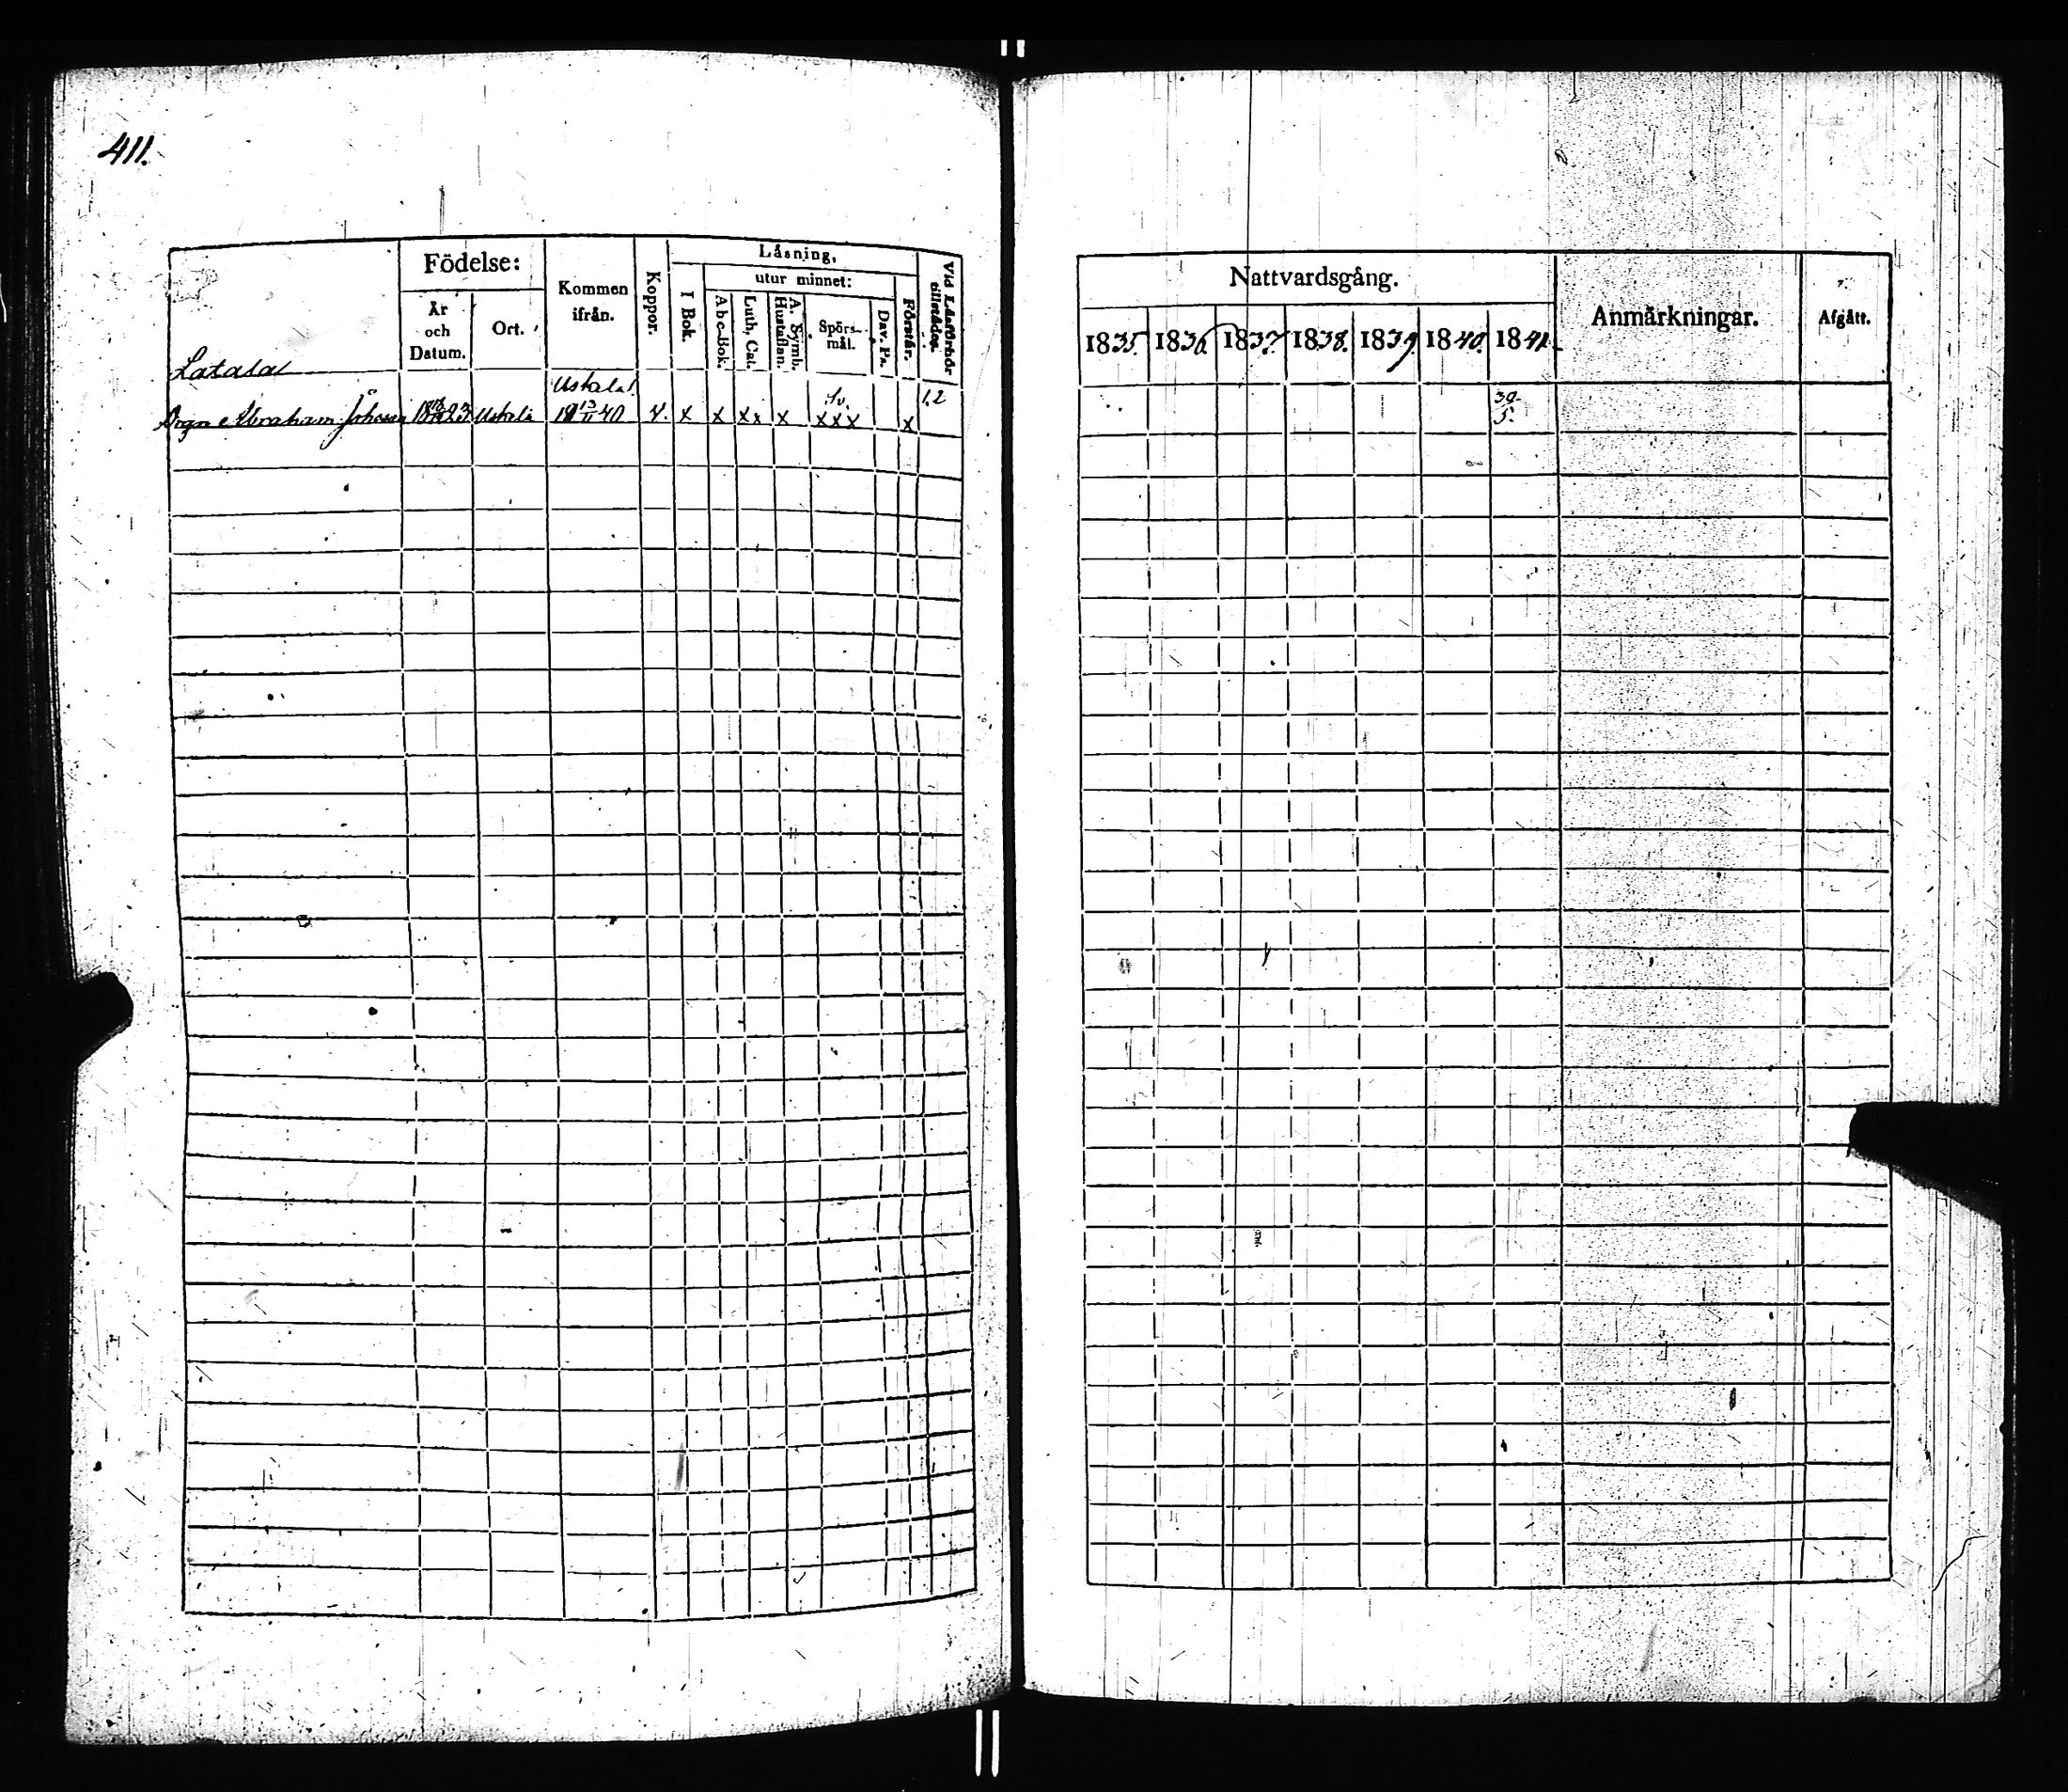 411.
Födelse:
Kommen ifrån.
Koppor.
Läsning,
utur minnet:
Vid Läsförhör tillstädes.
År och Datum.
Ort.
I Bok.
Abc-Bok.
Luth. Cat.
A. Symb. Hustaflan.
Spörsmål.
Dav. Ps.
Förstår.
Latala
Ustala
Sv.
1,2
Drgn Abraham Johsson 18 23 Ustala 18 13/11 40 v. x x xx x xxx x
Nattvardsgång.
Anmärkningar.
Afgått.
1835. 1836. 1837. 1838. 1839. 1840. 1841.
30
5.